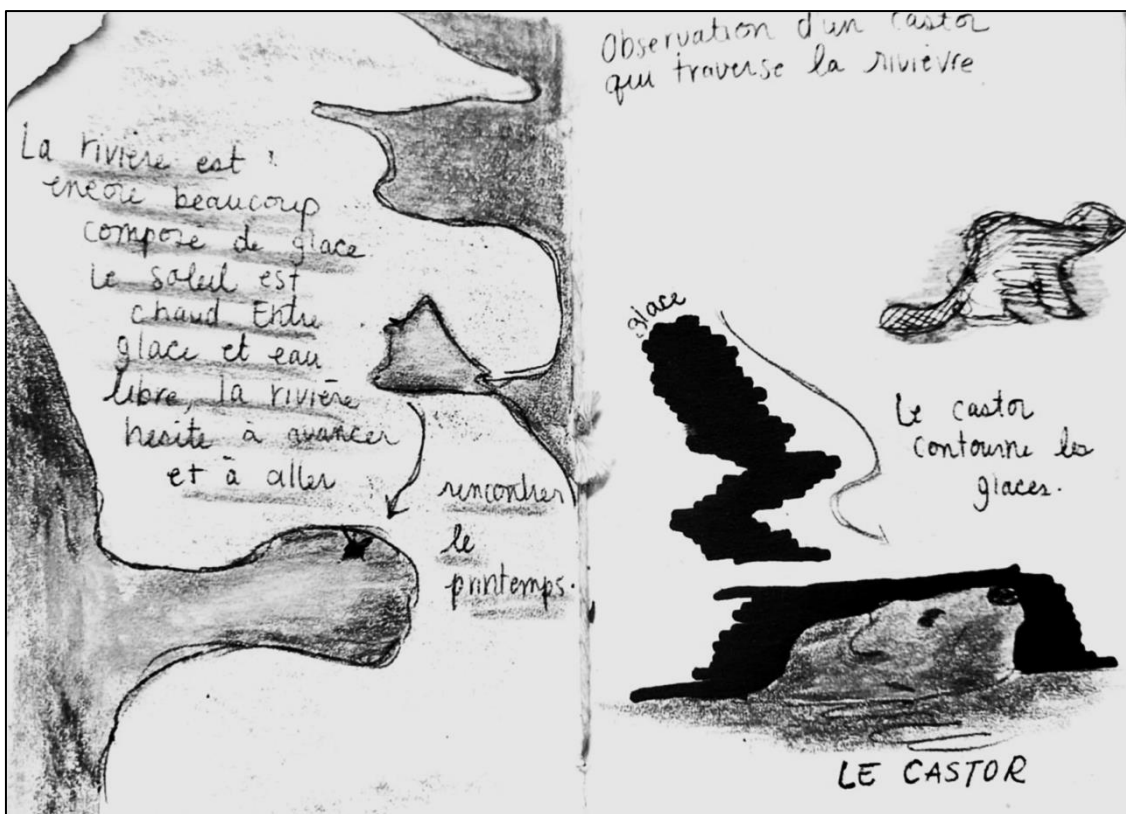 La rivière est
encore beaucoup
composé de glace
Le soleil est
chaud. Entre
glace et eau
libre, la rivière
hésite à avancer
et à aller
rencontrer
le
printemps.
Observation d'un castor
qui traverse la rivièvre
glace
Le castor
contourne les
glaces.
LE CASTOR